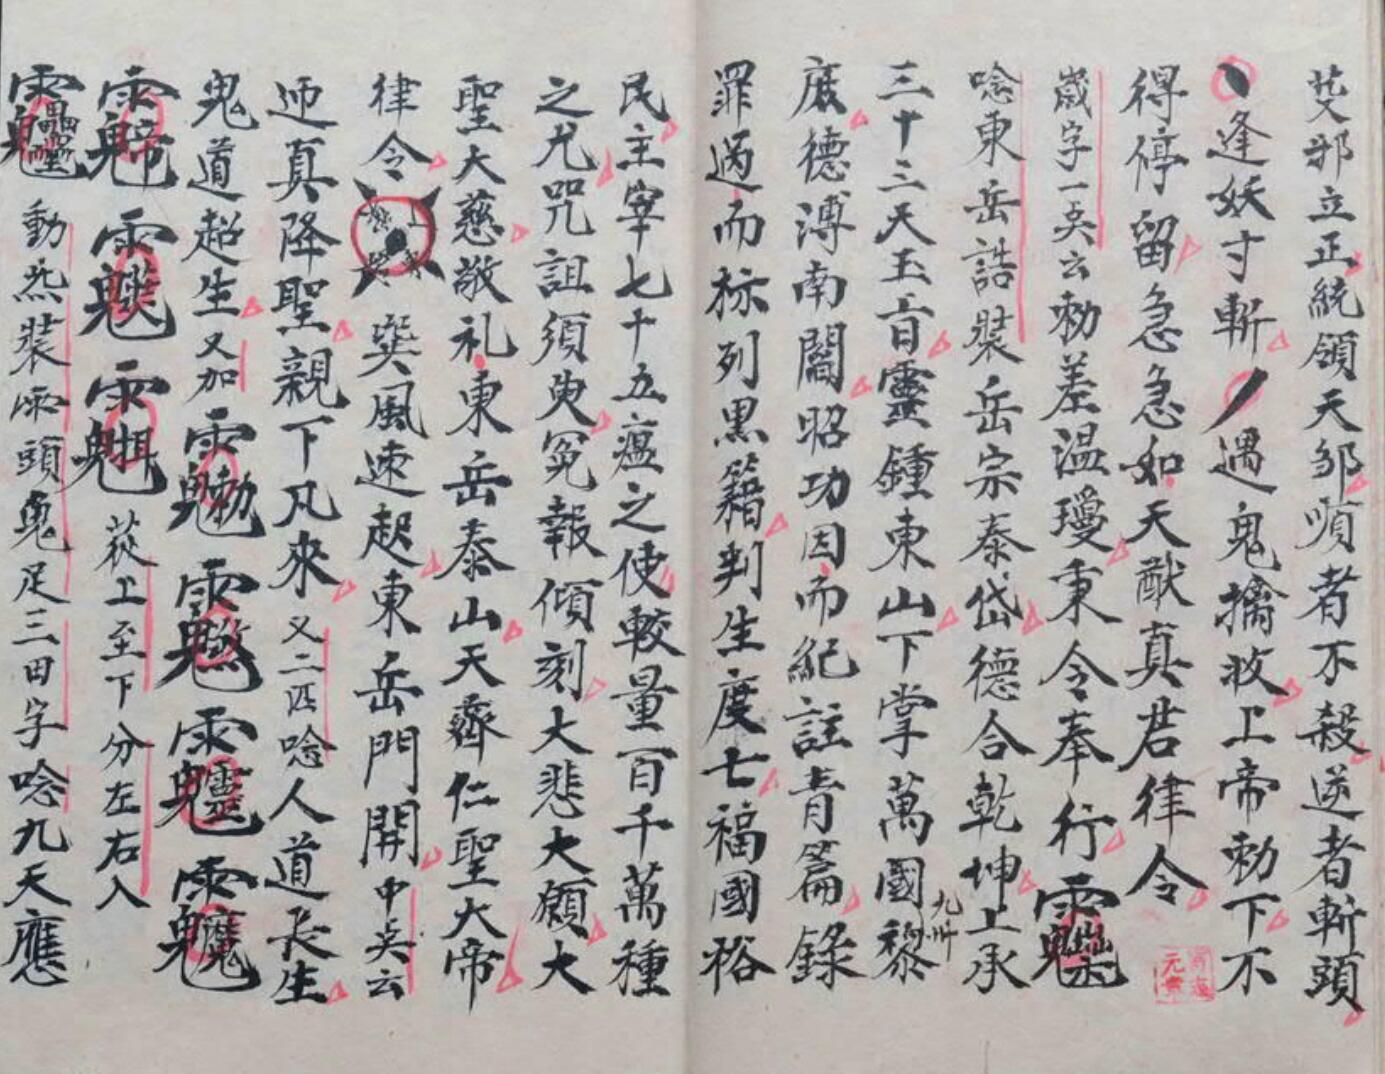 芟邪立正統領天邹順者不殺逆者斬頭
丶逢妖寸斬丿遇鬼擒收上帝勅下不
得停留急急如天猷真君律令
歲字一吳云勅差温瓊東令奉行
唸東岳誥裝岳宗泰岱德合乾坤上承
三十三天玉旨靈鍾東山下掌萬國九州黎
庶德溥南閻昭功因而紀註青篇錄
罪過而标列黒籍判生度亡福國裕
民主宰七十五瘟之使較量百千萬種
之尤咒詛須臾冤報傾刻大悲大願大
聖大慈敬礼東岳泰山天齊仁聖大帝
律令巽風速起東岳門開中吳云
师真降聖親下凡來又二匹唸人道長生
鬼道超生又加
從上至下分左右入
動炁裝雨頭鬼足三田字唸九天應